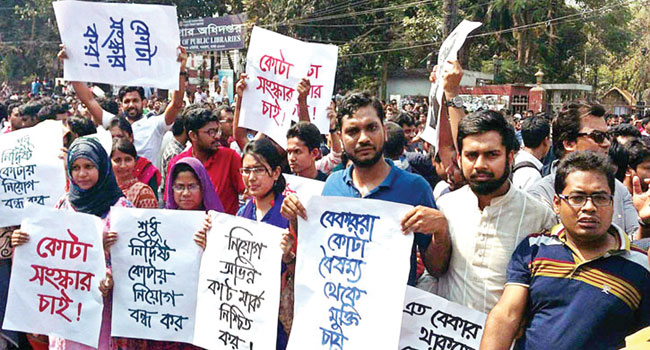 কোটা
সংস্কার
কর!
অধিদপ্তর
OF PUBLIC LIBRARIES
কোটা
সংস্কার
চাই!
নির্দিষ্ট
কোটায়
নিয়োগ
বন্ধ কর
কোটা
সংস্কার
চাই!
শুধু
নির্দিষ্ট
কোটায়
নিয়োগ
বন্ধ কর
নিয়োগ
অভিন্ন
কাট মার্ক
নিশ্চিত
কর!
বেকাররা
কোটা
বৈষম্য
থেকে
মুক্তি
চায়
এত বেকার
থাকতে